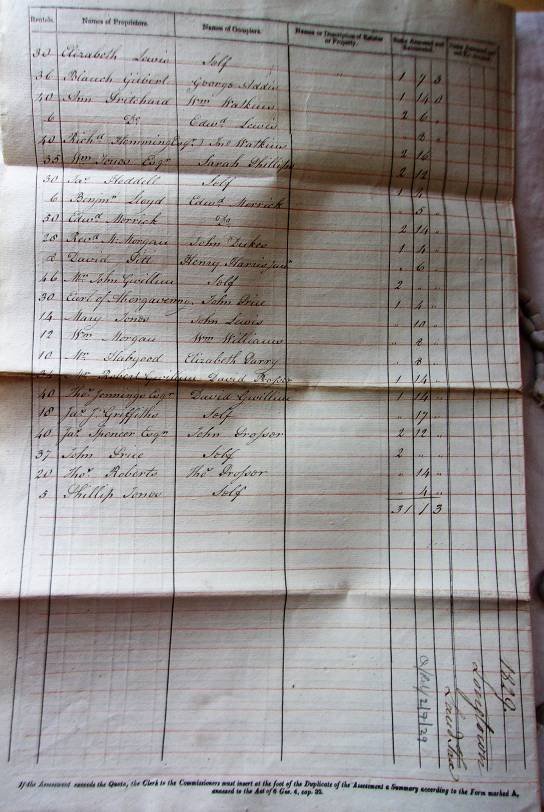 Rentals. Names of Proprietors. Names of Occupiers. Names or Description of Estates or Property. Sums Assessed and
30 Elizabeth Lewis Self 1 7 3
36 Blanch Gilbert George Addis 1 14 0
40 Ann Pritchard Wm Watkins 2 6 "
6 Do Edwd Lewis " 8 "
40 Richd Hemming Esqr Jno Watkins 2 16 "
55 Wm Jones Esqr Sarah Phillips 2 12 "
30 Jas Heddell Self 1 4 "
6 Benjmn Lloyd Edwd Merrick " 5 "
50 Edwd Merrick Do 2 14 "
28 Revd Mr Morgan John Dukes 1 4 "
2 David Pitt Henry Harris Junr " 6 "
46 Mr John Gwillim Self 2 "
30 Earl of Abergavenny John Price 1 4 "
14 Mary Jones John Lewis " 10 "
12 Wm Morgan Wm Williams " 8 "
10 Mr Elizabeth Parry " 8 "
Mr Robert Gwillim David Prosser 1 14 "
40 Thos Jennings Esqr David Gwillim 1 14 "
18 Jas J. Griffiths Self " 17 "
40 Jas Spencer Esqr John Prosser 2 12 "
37 John Price Self 2 "
20 Thos Roberts Thos Prosser 14 "
5 Phillip Jones Self " 4 "
31 1 3
1829
Llangattock
Land Tax
If the Assessment exceeds the Quota, the Clerk to the Commissioners must insert at the foot of the Duplicate of the Assessment a Summary according to the Form marked A,
annexed to the Act of 6 Geo. 4, cap. 32.